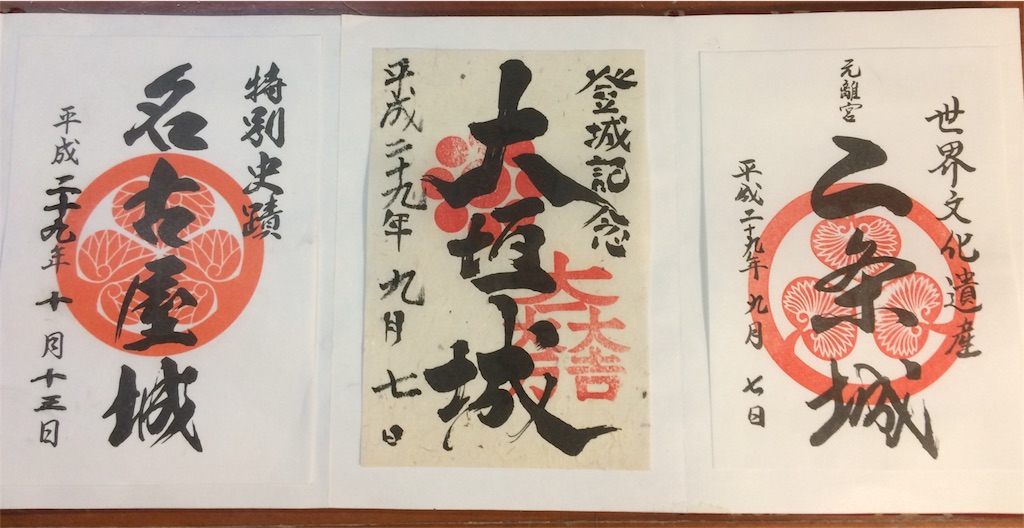 特別史蹟
名古屋城
平成二十九年十月十三日
登城記念
大垣城
平成二十九年九月七日
大一大万大吉
世界文化遺産
元離宮
二条城
平成二十九年九月七日